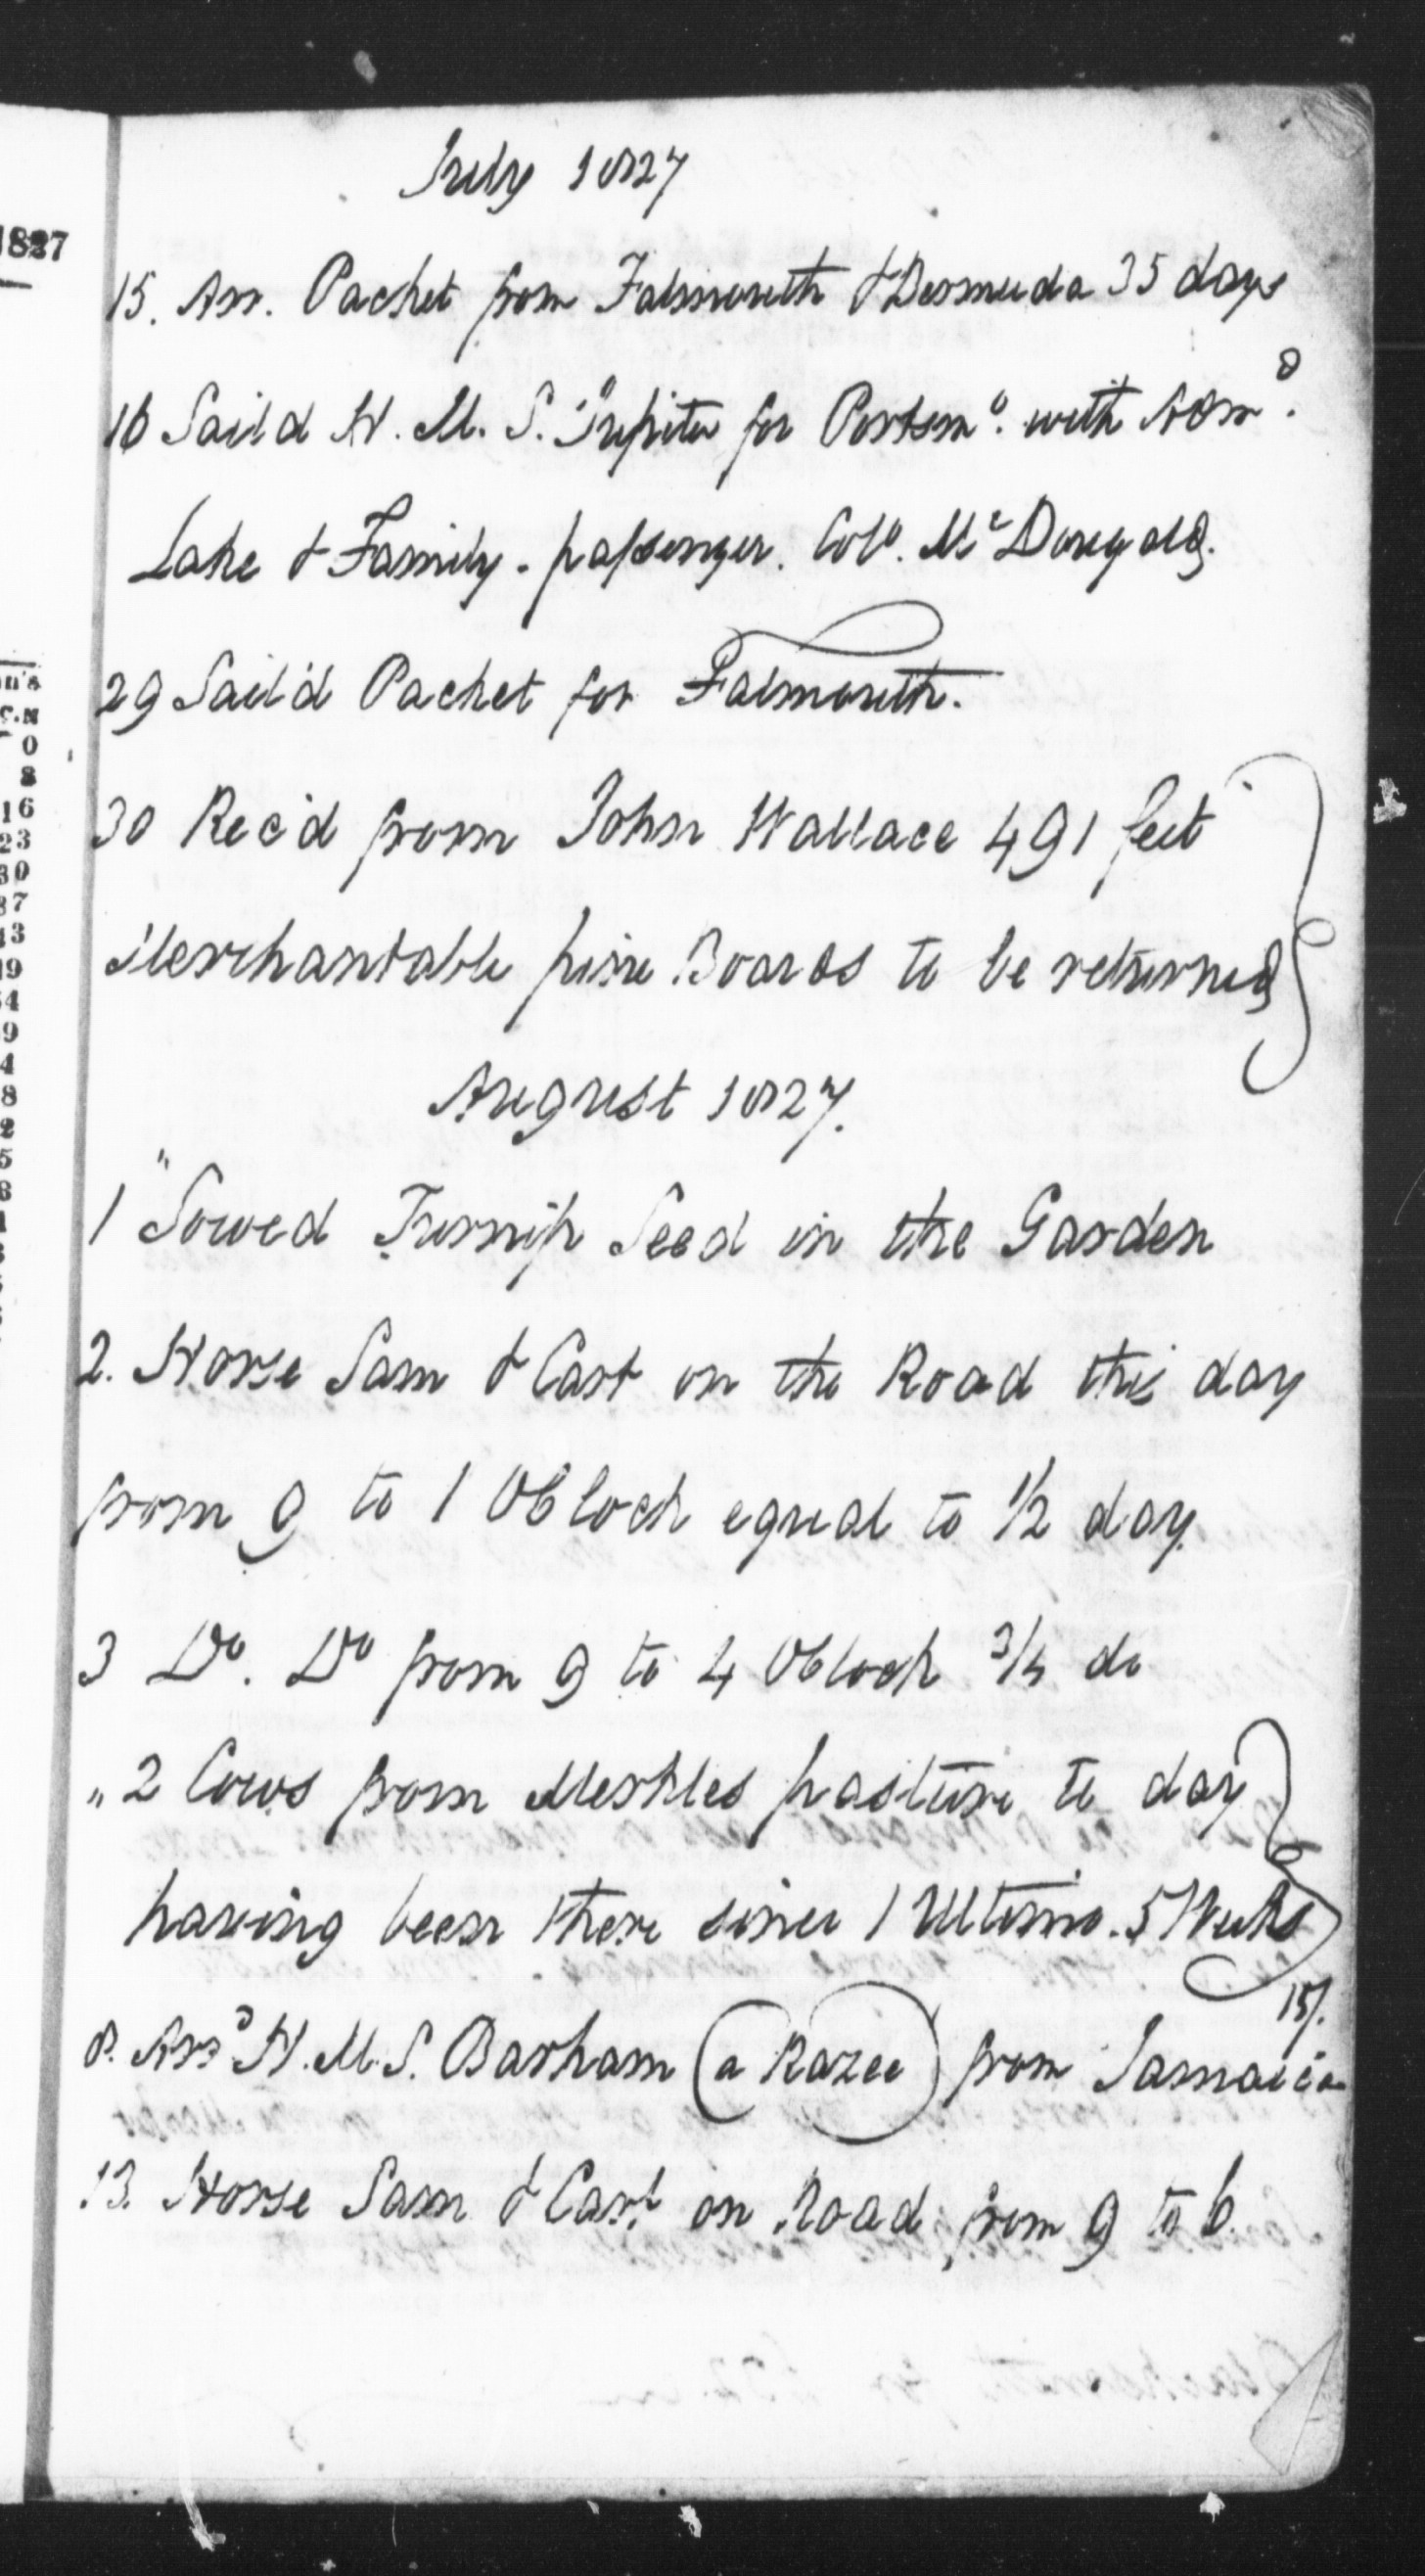 July 1827
15. Arr. Packet from Falmouth & Bermuda 35 days
16 Sail'd H. M. S. Jupiter for Portsmo. with Adm
Lake & Family - passenger. Coll. McDonegald.
29 Sail'd Packet for Falmouth.
30 Rec'd from John Wallace 491 feet
Merchantable pine Boards to be returned
August 1827.
1" Sowed Turnip Seed in the Garden
2. Horse Sam & Cart on the Road this day
from 9 to 1 OClock equal to 1/2 day.
3 Do. Do from 9 to 4 OClock 3/4 do
" 2 Cows from Merkles pasture to day
having been there since 1 Ultimo. 5 Weeks
15/.
8. Arrd H. M. S. Barham (a Razee) from Jamaica
13. Horse Sam & Cart on Road from 9 to 6.
1827
n's
C.M
0
8
16
23
30
37
43
49
54
9
4
8
2
5